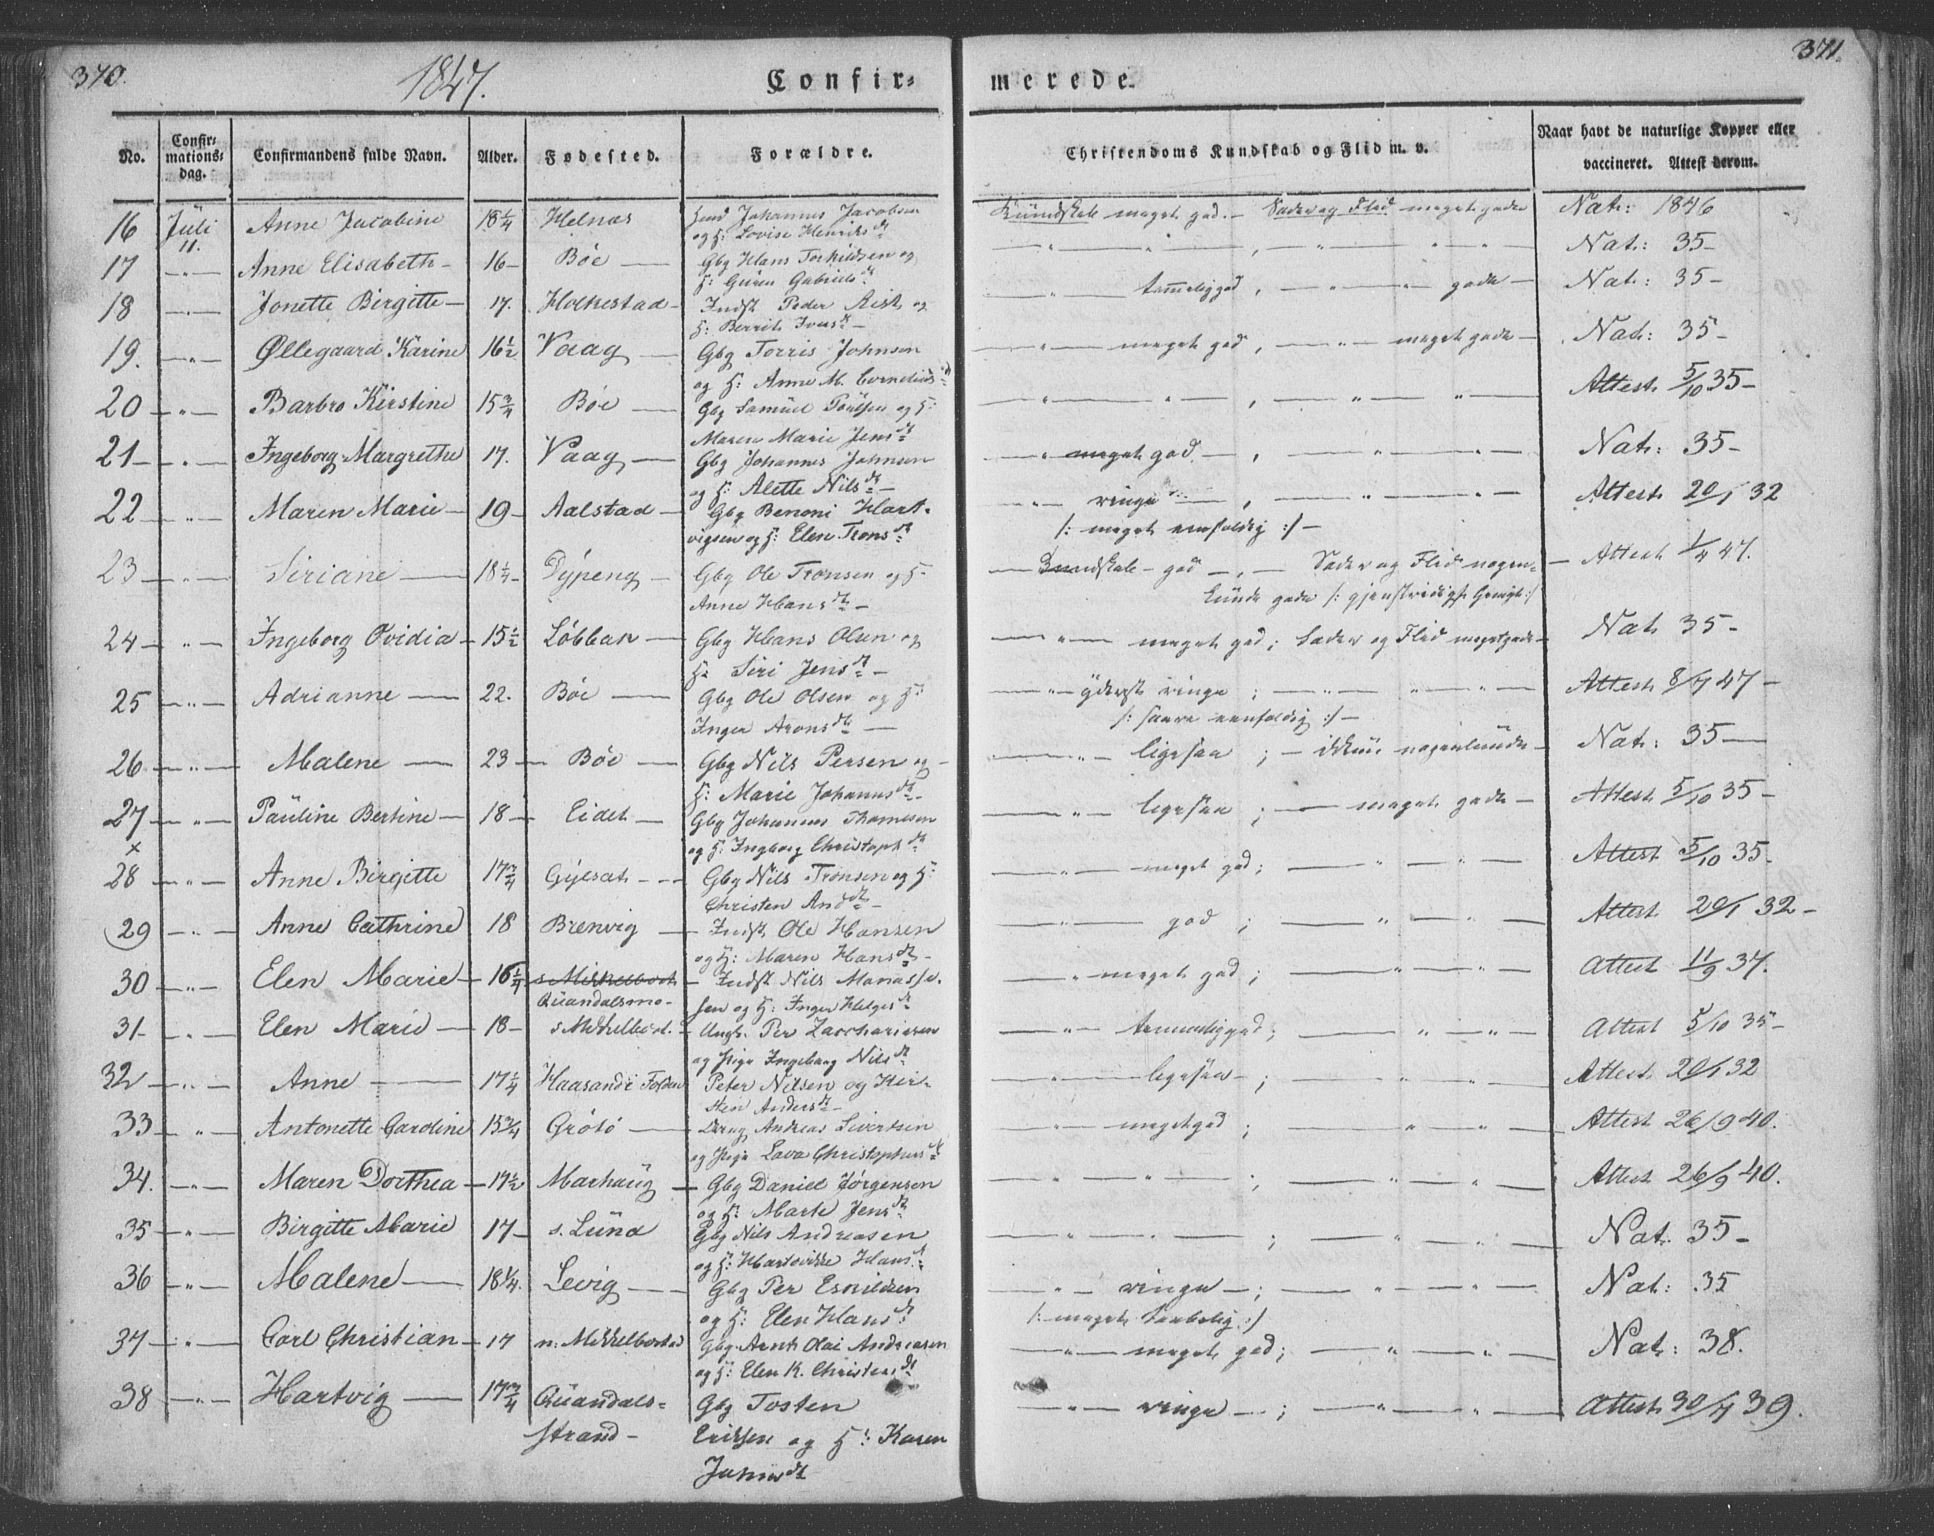 370. 1847. Confir= merede. 371.
No. Confir=mations=dag. Confirmandens fulde Navn. Alder. Fødested. Forældre. Christendoms Kundskab og Flid m. v. Naar havt de naturlige Kopper eller vaccineret. Attest derom.
16 Juli 11. Anne Jacobine 18 1/4 Helnæs Johannes Jacobsen Kundskab meget god. — Sæder og Flid meget gode Nat: 1846
og H: Lovise Henriksdt
17 — " — Anne Elisabeth — 16 — Bøe — Gbg Hans Torkildsen og — " — " — " — " — Nat: 35 —
H: Guren Gabrielsdt
18 — " — Jonette Birgitte — 17. Holkestad — Indst Peder Rist og — " — temelig god, — " — gode — Nat: 35 —
H: Berrit Iversdt —
19. — " — Øllegaard Karine 16 1/2 Vaag — Gbg Torris Johnsen — " — meget god, — " — meget gode — Nat: 35 —
og H: Anne M. Corneliusdt
20 — " — Barbro Kirstine 15 3/4 Bøe — Gbg Samuel Poulsen og H: — " — " — , — " — " — Attest 5/10 35 —
Maren Marie Jensdt
21 — " — Ingeborg Margrethe 17. Vaag — Gbg Johannes Johnsen — " meget god — , — " — " — Nat: 35 —
og H: Alette Nilsdt —
22 — " — Maren Marie — 19 — Aalstad — Gbg Benoni Hart- — " — ringe — , — " — " — Attest 20/1 32
vigsen og H: Elen Tronsdt /: meget eenfoldig :/ —
23 — " — Siriane — 18 1/4 — Dypeng — Gbg Ole Tronsen og H: — Kundskab — god — , — Sæder og Flid nogen= — Attest 1/4 47.
Anne Hansdt — lunde gode /: gjenstridigt :/
24 — " — Ingeborg Ovidia — 15 1/2 Løbban — Gbg Hans Olsen og — " — meget god; Sæder og Flid meget gode — Nat 35 —
H: Siri Jensdt —
25 — " — Adrianne — 22. Bøe — Gbg Ole Olsen og H: — " — yderst ringe ; — " — " — " — Attest 8/7 47 —
Inger Aronsdt — /: saare eenfoldig :/ —
26 — " — Malene — 23 — Bøe — Gbg Nils Persen og — — " — ligesaa ; — ikkun nogenlunde — Nat: 35 —
H: Marie Johannesdt —
27 — " — Pauline Bertine — 18 — Eidet — Gbg Johannes Thomesen — " — ligesaa ; — meget gode — Attest 5/10 35 —
x og H: Ingborg Christophdt
28 — " — Anne Birgitte 17 3/4 Gylsat — Gbg Nils Tronsen og H: — " — meget god; — " — " — Attest 5/10 35 —
Christen Anddt —
29 — " — Anne Cathrine 18 Brenvig — Indst Ole Hansen — " — god ; — " — " — Attest 20/1 32 —
og H: Maren Hansdt —
30 — " — Elen Marie — 16 1/4 s. Mikkelbost — Indst Nils Manasse- — " — meget god; — " — " — Attest 11/9 37.
Quandalsmo- sen og H: Inger Helgesdt
31 — " — Elen Marie — 18 — s. Mikkelbost. — Ungk. Per Zacchariasen — " — temmelig god; — " — " — Attest 5/10 35 —
og Pige Ingeborg Nilsdt
32 — " — Anne — 17 1/4 Haasand i Folden Peter Nilsen og Kir- — " — ligesaa — ; — " — " — Attest 20/1 32
sten Andersdt —
33 — " — Antonette Cardine 15 3/4 Grøtø — Andreas Sivertsen — " — meget god ; — " — " — Attest 26/9 40.
og Pige Lava Christophersdt
34. — " — Maren Dorthea — 17 1/2 Marhaug — Gbg Daniel Jørgensen — " — " — " — ; — " — " — Attest 26/9 40.
og H: Marte Jensdt
35 — " — Birgitte Marie 17 — s. Lund Gbg Nils Andreasen — " — " — " — ; — " — " — Nat. 35 —
og H: Hartvikke Hansdt
36 — " — Malene — 18 1/4. Løvig — Gbg Per Esnildsen — " — ringe — ; — " — " — Nat: 35
og H: Elen Hansdt /: meget Svabelig :/
37 — " — Carl Christian — 17 n: Mikkelbostad Gbg Arnt Olai Andreasen — " — meget god; — " — " — Nat: 38.
og H: Elen K. Christensdt
38 — " — Hartvig — 17 3/4 Quandals= Gbg Tosten — " — ringe — ; — " — " — Attest 30/7 39.
strand — Eriksen og H: Karen